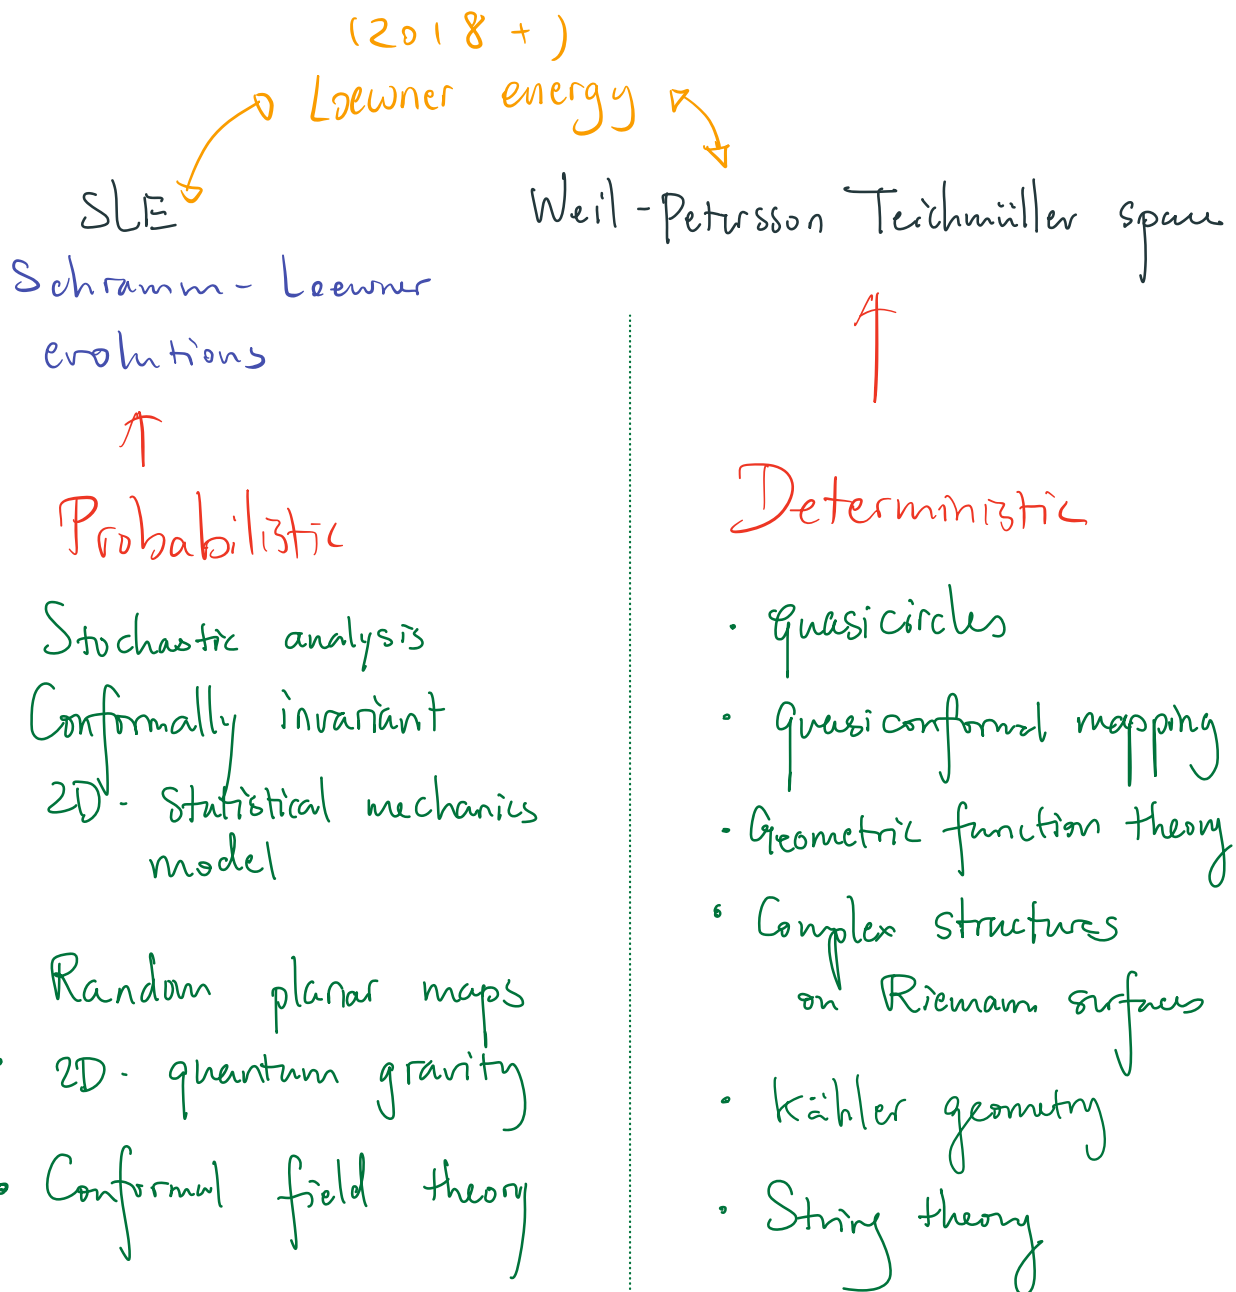 (2018+)
Loewner energy
SLE
Schramm-Loewner
evolutions
Probabilistic
Stochastic analysis
Conformally invariant
2D - Statistical mechanics
model
Random planar maps
• 2D - quantum gravity
• Conformal field theory
Weil-Petersson Teichmüller space
Deterministic
• quasicircles
• quasiconformal mapping
• Geometric function theory
• Complex structures
on Riemann surfaces
• Kähler geometry
• String theory